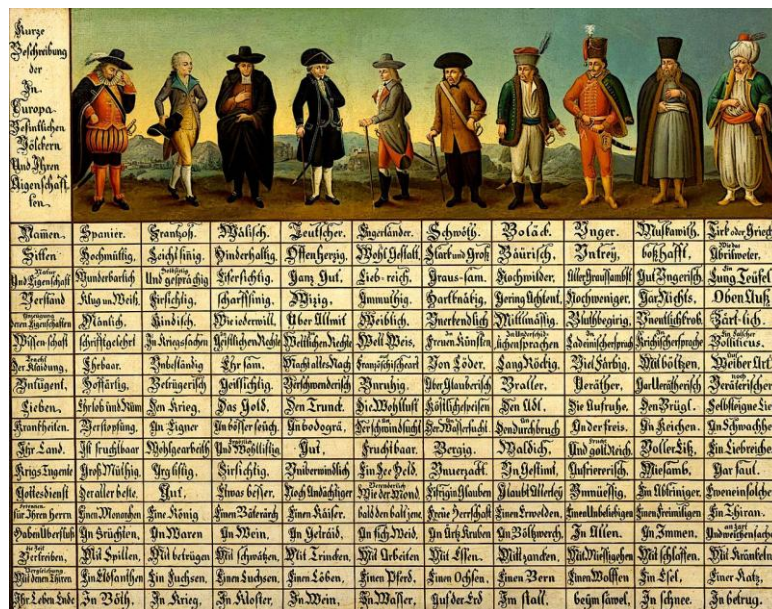 Kurze
Beschreibung
der
In
Europa
Befintlichen
Völckern
Und Ihren
Aigenschaff
ten.
Namen. Spanier. Frantzoß. Wälisch. Teutscher. Engerländer. Schwöth. Boläck. Unger. Muskawith. Tirk oder Griech
Sitten Hochmüttig, Leichtsinig, Hinderhaltig, Offenherzig, Wohl Gestalt, Starck und Groß Bäurisch, Untrey, boßhafft, Abrilweter,
Und Eigenschaft Wunderbarlich Und gesprächig Eifersichtig, Ganz Gut, Lieb-reich, Graus-sam, Hochwilder, Aller Graussambst Gut Ungerisch, Lung Teüfel
Verstand Klug un Weiß, Firsichtig, scharffsinig, Wizig, Ammuthig, Hartknätig, Gering Achtent, Nochweniger, Gar Nichts, Oben Auß
deren Eigenschaften Mänlich, Kindisch, Wie iederwill, Über Allmit Weiblich, Unerkendlich Mittlmässig, Bluthbegirig, Unentlichkrob, Zärt-lich.
Wissenschaft schriftgelehrt In Kriegssachen Geistlichen Rechte Weltlichen Rechte Welt Weis, Freuen Künsten lichensprachen Ladeinischersprach Krichischersprache Bolliticus.
Der Klaidung, Ehrbaar. Unbeständig Ehrsam. Macht alles Nach Französischeart Von Löder. Lang Röckig. Viel Färbig. Mit böltzen. Weiber Art.
Untugent, Hoffärtig. Betrügerisch Geillsichtig. Verschwenderisch Unruhig. Aber Glauberisch Braller. Veräther. Gar Verätherisch Veräterischer
Lieben. Ehrlob und Rüm Den Krieg. Das Gold. Den Trunck. Die Wohllust Köstlichespeisen Den Adl. Die Aufruhe. Den Brügl. Selbsteigne Lieb
Krankheiten. Verstopfung. An Eigner An bösser seüch. An bodogrä. Der schwindsucht Der Wassersucht Den durchbruch An der freis. An Keichen. An Schwachheit
Ihr Land. Ist fruchtbaar Wohlgearbeith Und Wohllistig Gut. Fruchtbaar. Bergig. Waldich. Und gold Reich. Voller Eiß. Ein Liebreiches
Krigs Tugente Groß Müthig. Arg listig. Firsichtig. Unüberwindlich Ein See Held. Unverzackt Un Gestimt. Aufriererisch. Miesamb. Gar faul.
Gottesdienst Der aller beste. Gut. Etwas besser. Noch Andächtiger Wie der Mond. Eifrig in Glauben Glaubt Allerley Unmüessig. Ein Abtriniger. Eweneinsolcher
für Ihren Herrn Einen Monarchen Eine König Einen Bäterärch Einen Käiser. bald den balt jene Freüe Herrschaft Einen Erwelden. Einen Unbeliebigen Einen Freimiligen Ein Thiran.
Haben Überfluß An Früchten. An Waren An Wein. An Getraid. An fich Weid. An Ärtz Kruben An Böltzwerch. In Allen. An Immen. Und weichen sachen
Vertreiben. Mit Spillen. Mit betrügen Mit schwätzen. Mit Trincken. Mit Arbeiten Mit Essen. Mit zancken. Mit Miessigehen Mit schlaffen. Mit Kränkeln
Mit denen Thiren Ein Elofanthen Ein Fuchsen. Einen Luchsen. Einen Löben. Einen Pferd. Einen Ochsen. Einen Bern Einen Wolffen Ein Esel. Einer Katz.
Ihr Leben Ende In Böth. In Krieg. In Kloster. In Wein. In Wasser. Auf der Erd Im stall. beym sawel. In schnee. In betrug.